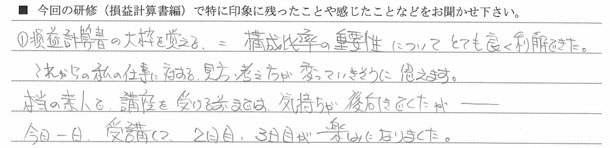 ■ 今回の研修（損益計算書編）で特に印象に残ったことや感じたことなどをお聞かせ下さい。
①損益計算書の大枠を覚える、= 構成比率の重要性についてとても良く利解できた。
これからの私の仕事に対する、見方、考え方が変っていきそうに思えます。
本当の素人で、講座を受ける前までは、気持ちが後向きでしたが ――
今日一日、受講して、2日目、3日目が楽しみになりました。